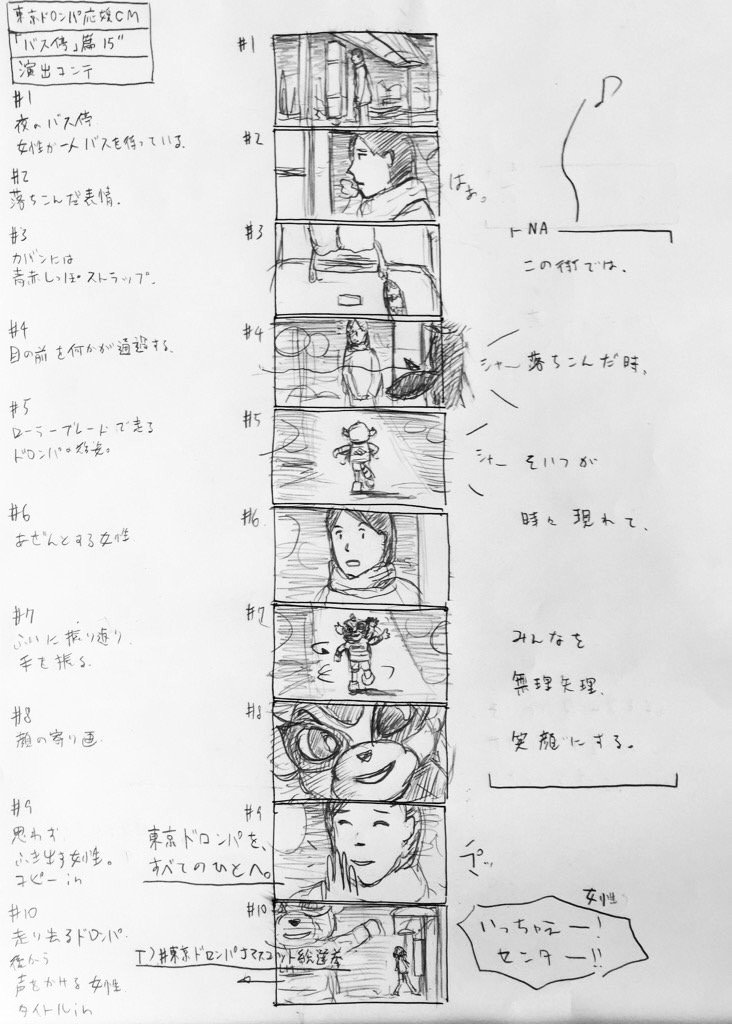 東京ドロンパ応援CM
「バス停」篇 15"
演出コンテ
#1
夜のバス停.
女性が一人バスを待っている.
#2
落ちこんだ表情.
#3
カバンには
青赤しっぽストラップ.
#4
目の前を何かが通過する.
#5
ローラーブレードで走る
ドロンパの勇姿。
#6
あぜんとする女性
#7
ふいに振り返り.
手を振る.
#8
顔の寄り画.
#9
思わず
ふき出す女性。
コピーin
#10
走り去るドロンパ.
後から
声をかける女性
タイトルin
#1
#2
はぁ。
#3
#4
シャー
#5
シャー
#6
#7
#8
#9
東京ドロンパを、
すべてのひとへ。
プッ
#10
T)#東京ドロンパ
マスコット総選挙
♪
NA
この街では、
落ちこんだ時、
そいつが
時々現れて、
みんなを
無理矢理、
笑顔にする。
女性
いっちゃえー!
センター!!